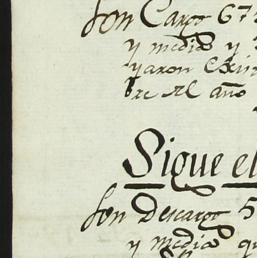 Son Cargo 67
y media y
yaron
bre del año
Sigue el
Son Descargo 5
y media q